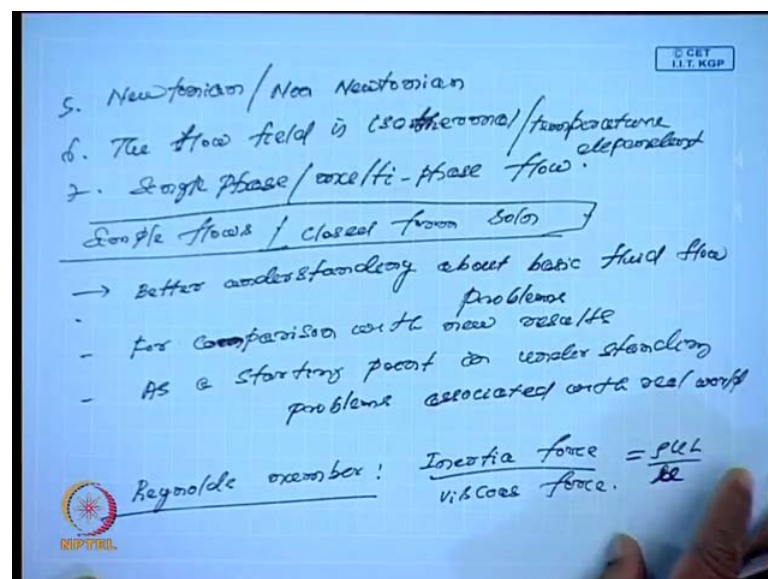 © CET
I.I.T. KGP
5. Newtonian / Non Newtonian
6. The flow field is isothermal / temperature
dependent
7. Single phase / multi-phase flow.
Simple flows / closed form soln
→ Better understanding about basic fluid flow
problems
- For comparison with new results
- As a starting point in understanding
problems associated with real world
Reynolds number : Inertia force / viscous force. = ρUL / μ
NPTEL